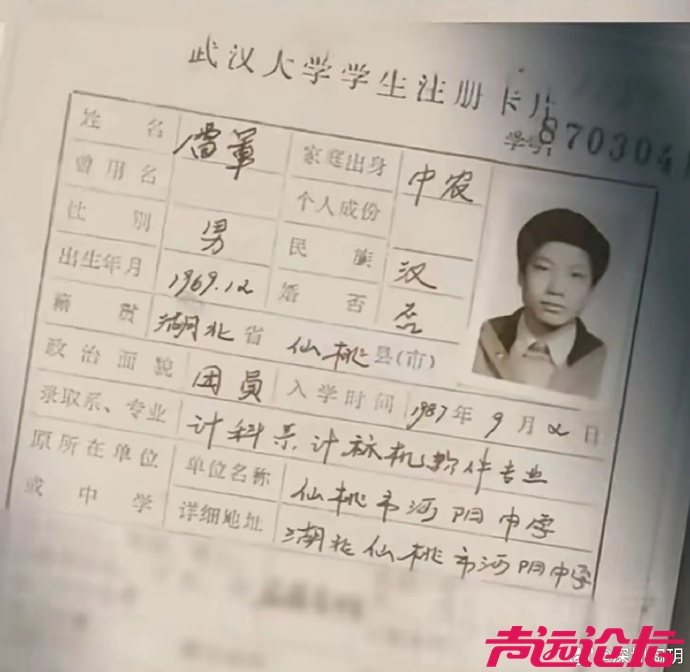 武汉大学学生注册卡片
学号: 870304
姓名 雷軍 家庭出身 中农
曾用名 个人成份
性别 男 民族 汉
出生年月 1969.12 婚否 否
籍贯 湖北省 仙桃县(市)
政治面貌 团员 入学时间 1987年9月2日
录取系、专业 计科系计祘机软件专业
原所在单位 单位名称 仙桃市沔阳中学
或中学 详细地址 湖北仙桃市沔阳中学
声远论坛